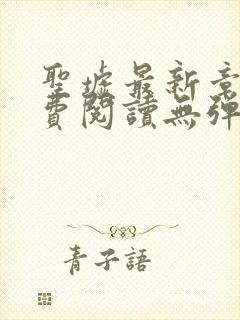 聖墟最新章
費閱讀無彈
青子語